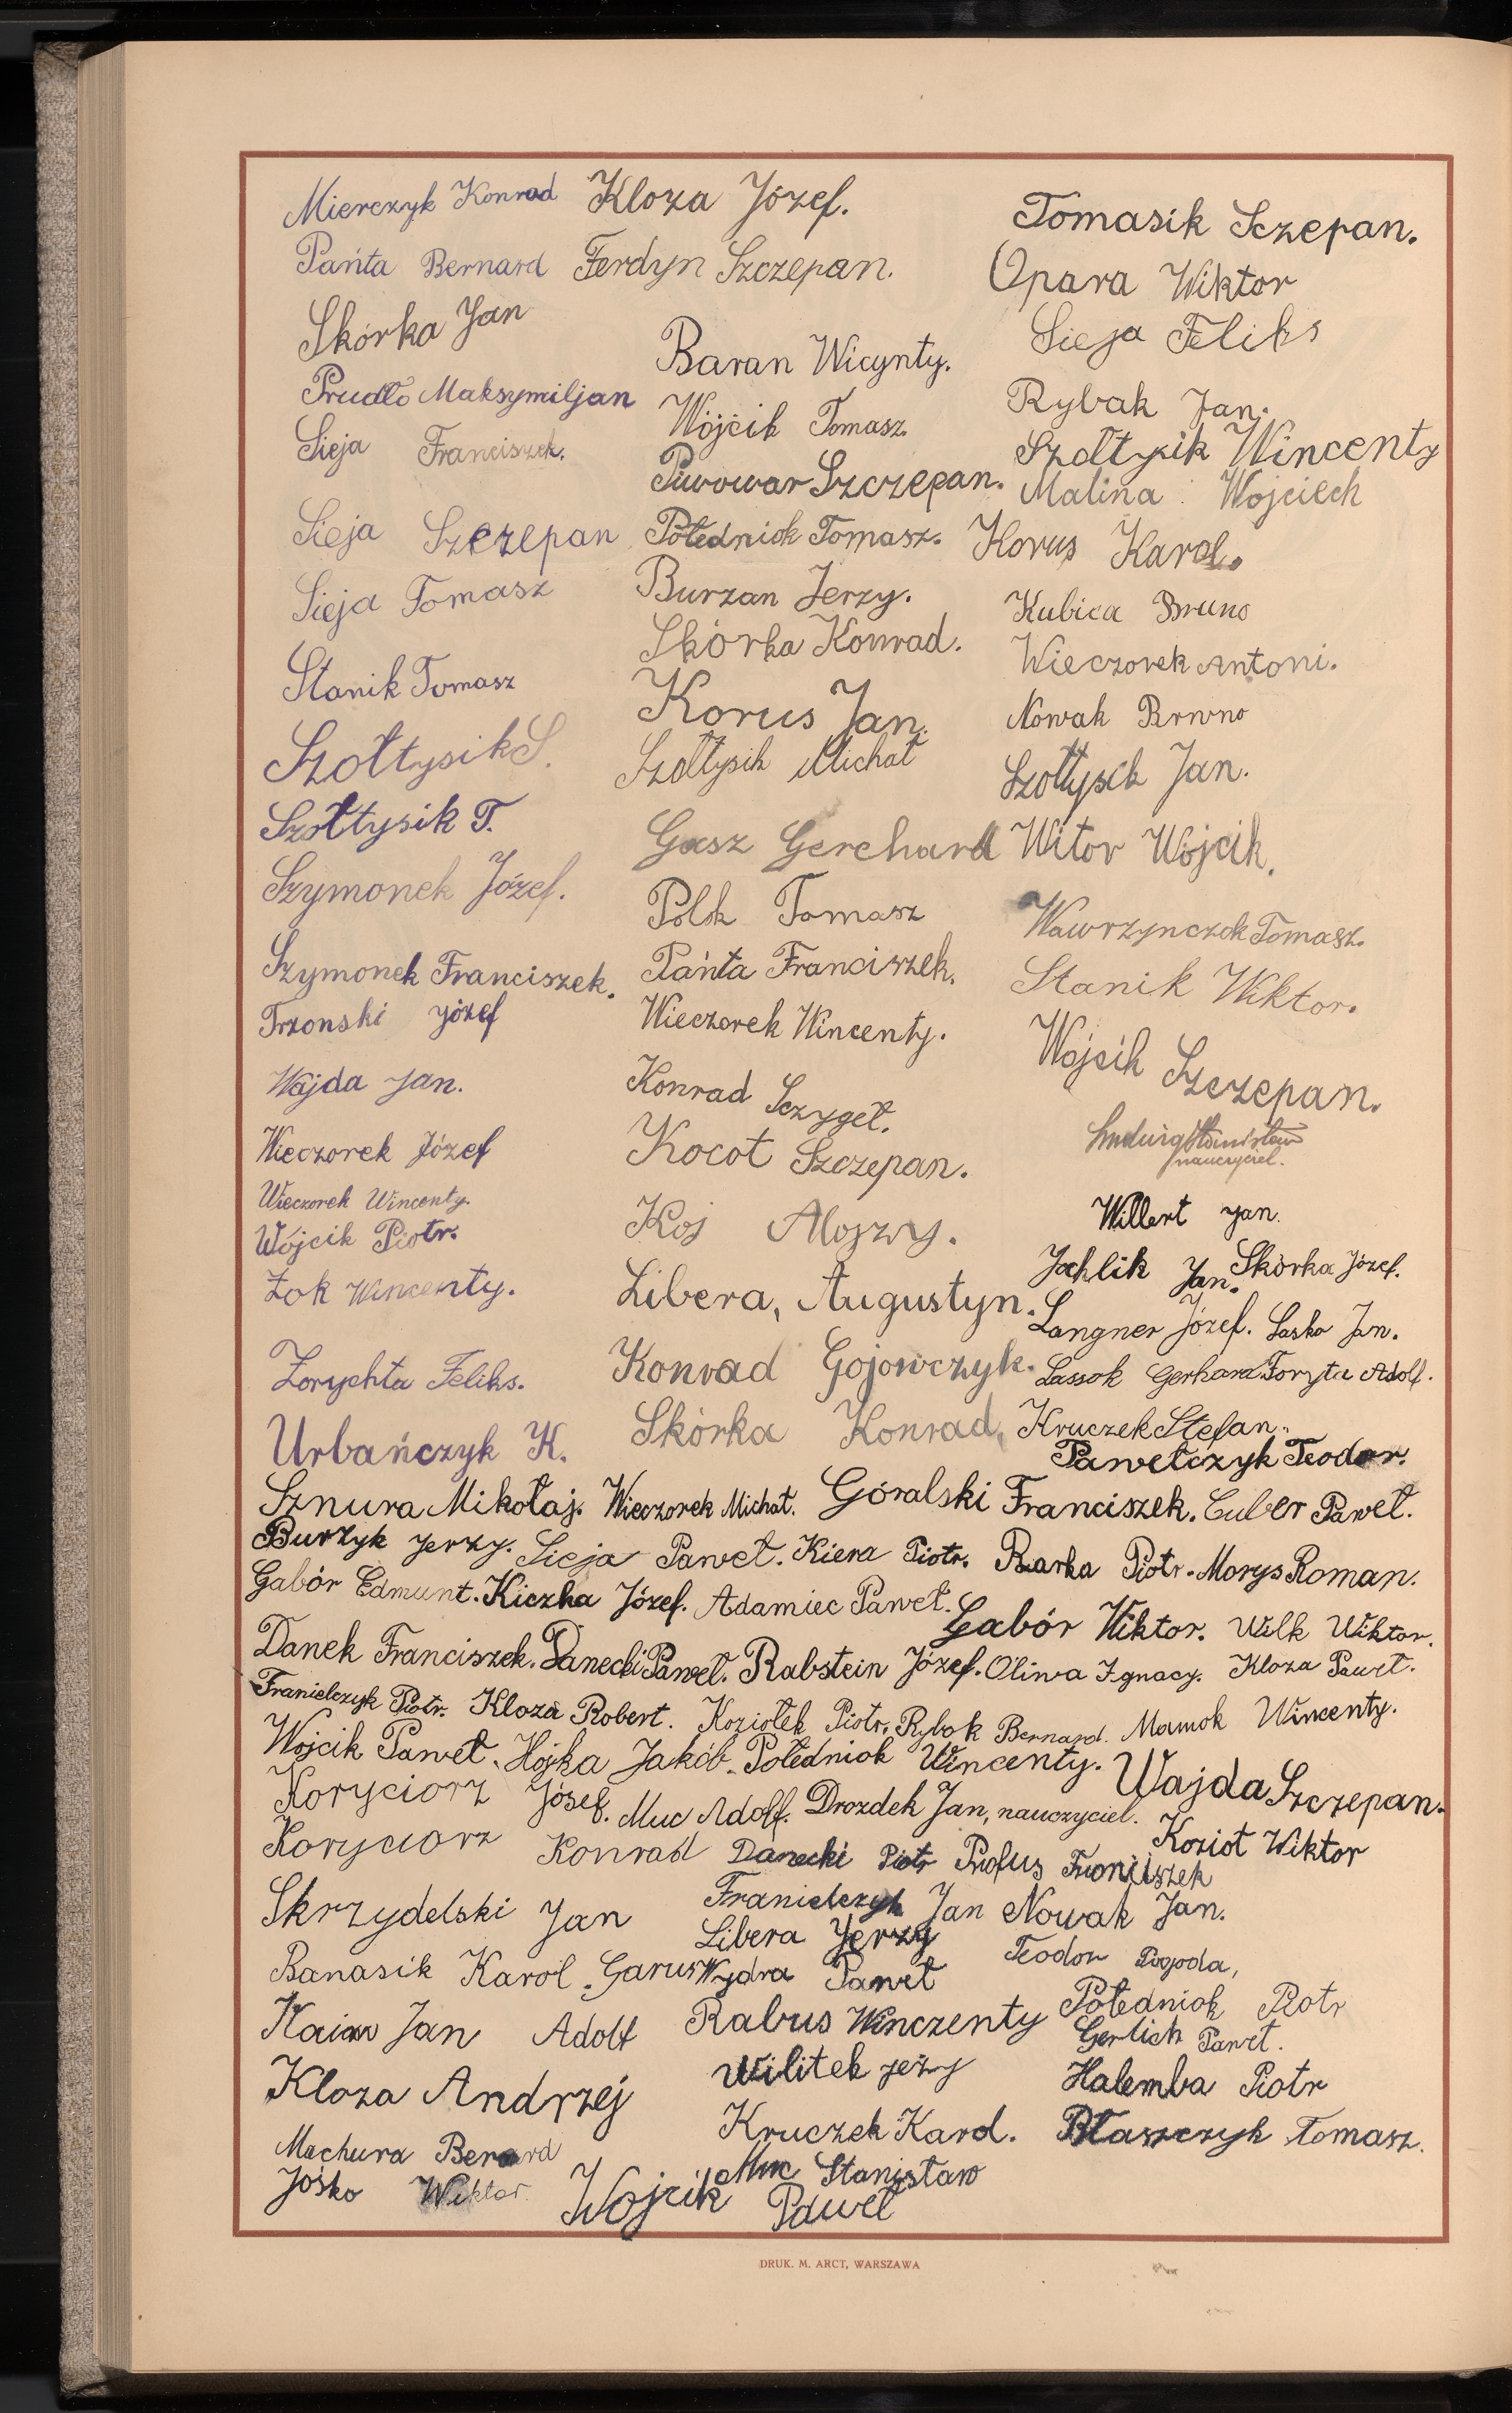 Mierczyk Konrad
Pańta Bernard
Skórka Jan
Prudło Maksymiljan
Sieja Franciszek.
Sieja Szczepan
Sieja Tomasz
Stanik Tomasz
Szołtysik S.
Szołtysik T.
Szymonek Józef.
Szymonek Franciszek.
Trzonski Józef
Wajda Jan.
Wieczorek Józef
Wieczorek Wincenty.
Wójcik Piotr.
Żok Wincenty.
Zorychta Feliks.
Urbańczyk K.
Kloza Józef.
Ferdyn Szczepan.
Baran Wicynty.
Wójcik Tomasz.
Piwowar Szczepan.
Połedniok Tomasz.
Burzan Jerzy.
Skórka Konrad.
Korus Jan.
Szołtysik Michał
Gasz Gerchard
Polok Tomasz
Pańta Franciszek.
Wieczorek Wincenty.
Konrad Sczygeł.
Kocot Szczepan.
Koj Alojzy.
Libera, Augustyn.
Konrad Gojowczyk.
Skórka Konrad.
Tomasik Sczepan.
Opara Wiktor
Sieja Feliks
Rybak Jan.
Szołtysik Wincenty
Malina Wojciech
Korus Karol.
Kubica Bruno
Wieczorek Antoni.
Nowak Brwno
Szołtysek Jan.
Witor Wójcik.
Wawrzynczok Tomasz.
Stanik Wiktor.
Wójcik Szczepan.
Ludwig Stanisław
nauczyciel.
Willert Jan.
Jochlik Jan. Skórka Józef.
Langner Józef. Lasko Jan.
Lassok Gerhard Foryta Adolf.
Kruczek Stefan.
Pawełczyk Teodor.
Sznura Mikołaj. Wieczorek Michał. Góralski Franciszek. Cuber Paweł.
Burzyk Jerzy. Sieja Paweł. Kiera Piotr. Rzarka Piotr. Morys Roman.
Gabór Edmunt. Kiczka Józef. Adamiec Paweł. Gabór Wiktor. Wilk Wiktor.
Danek Franciszek. Danecki Paweł. Rabstein Józef. Oliwa Ignacy. Kloza Paweł.
Franielczyk Piotr. Kloza Robert. Koziołek Piotr. Rybok Bernard. Mamok Wincenty.
Wojcik Paweł. Hojka Jakób. Połedniok Wincenty. Wajda Szczepan.
Koryciorz Jósef. Muc Adolf. Drozdek Jan, nauczyciel. Kozioł Wiktor
Koryciorz Konrad Danecki Piotr Profus Froniszek
Skrzydelski Jan Franielczyk Jan Nowak Jan.
Libera Jerzy Teodor Pogoda,
Banasik Karol. Garus Wydra Paweł
Jan Adolf Rabus Winczenty Połedniok Piotr
Gerlich Paweł.
Kloza Andrzej Wilitek Jeży Halemba Piotr
Kruczek Karol. Błaszczyk Tomasz.
Machura Bernard
Jośko Wiktor. Muc Stanisław
Wojcik Paweł
DRUK. M. ARCT, WARSZAWA